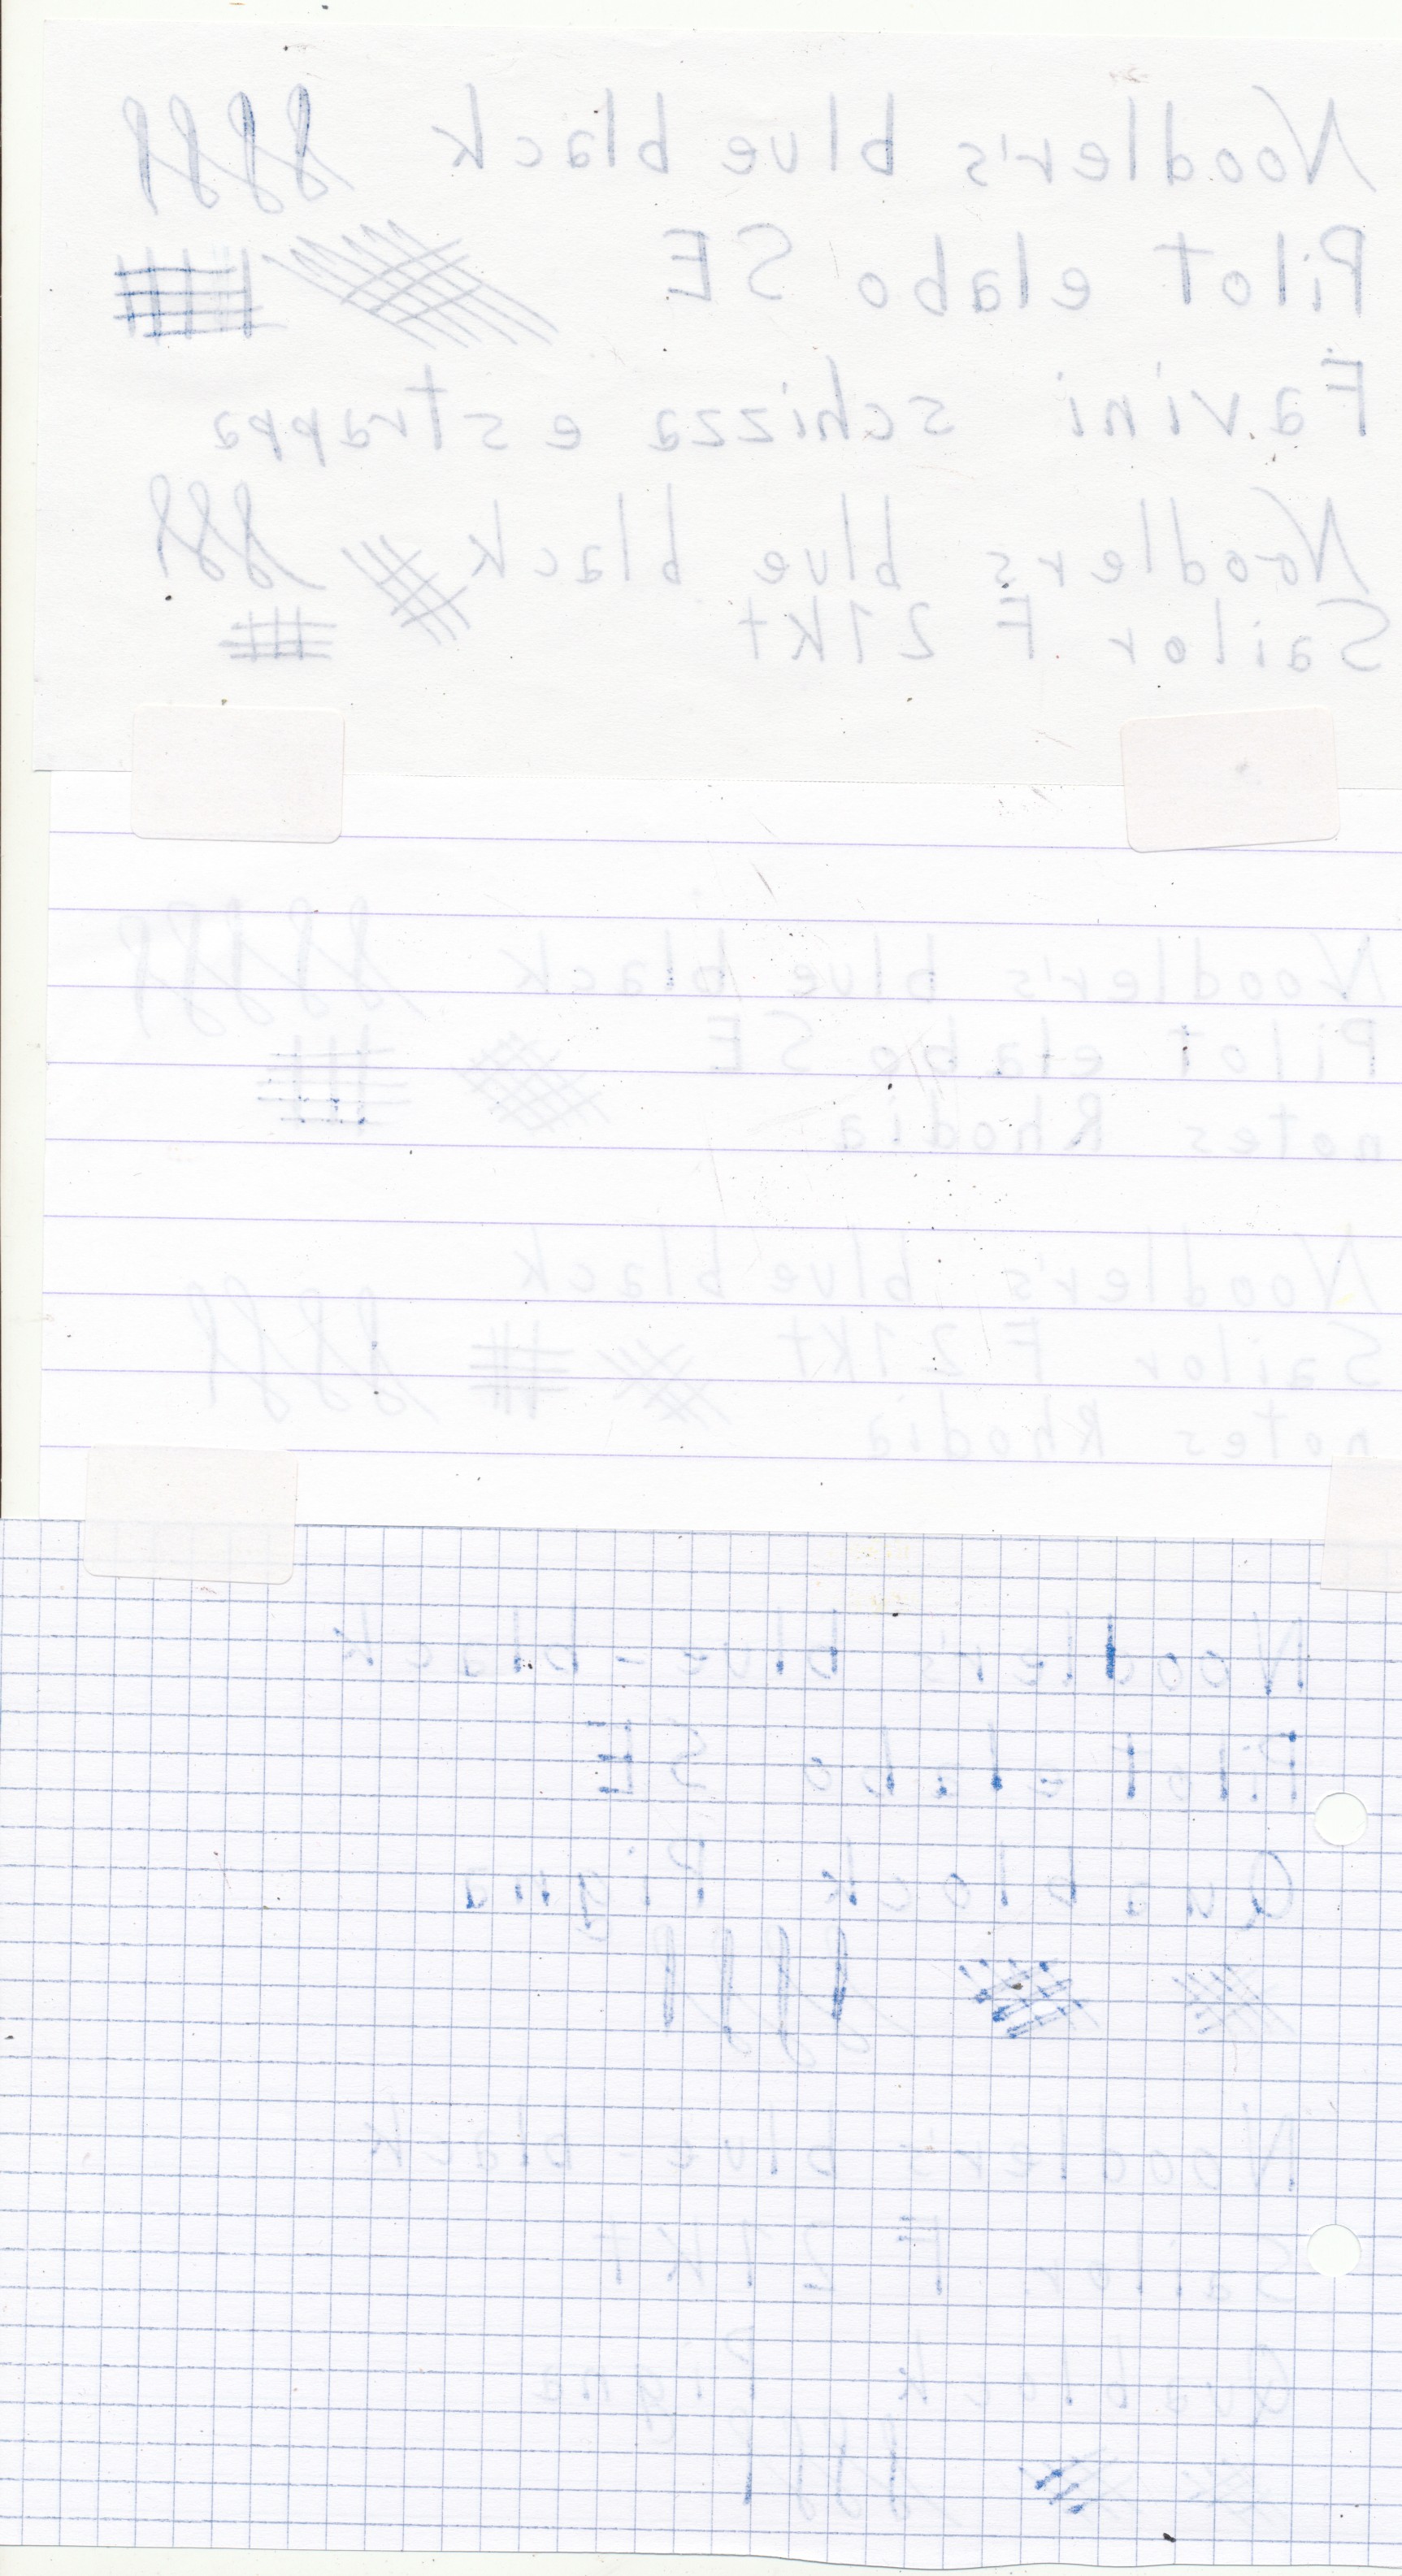 Noodler's blue black
Pilot elabo SE
Favini schizza e strappa
Noodlers blue black
Sailor F 21kt
Noodler's blue black
Pilot elabo SE
notes Rhodia
Noodler's blue black
Sailor F 21kt
notes Rhodia
Noodler's blue-black
Pilot elabo SE
Quablock Pigna
Noodler's blue-black
Sailor F 21kt
Quablock Pigna